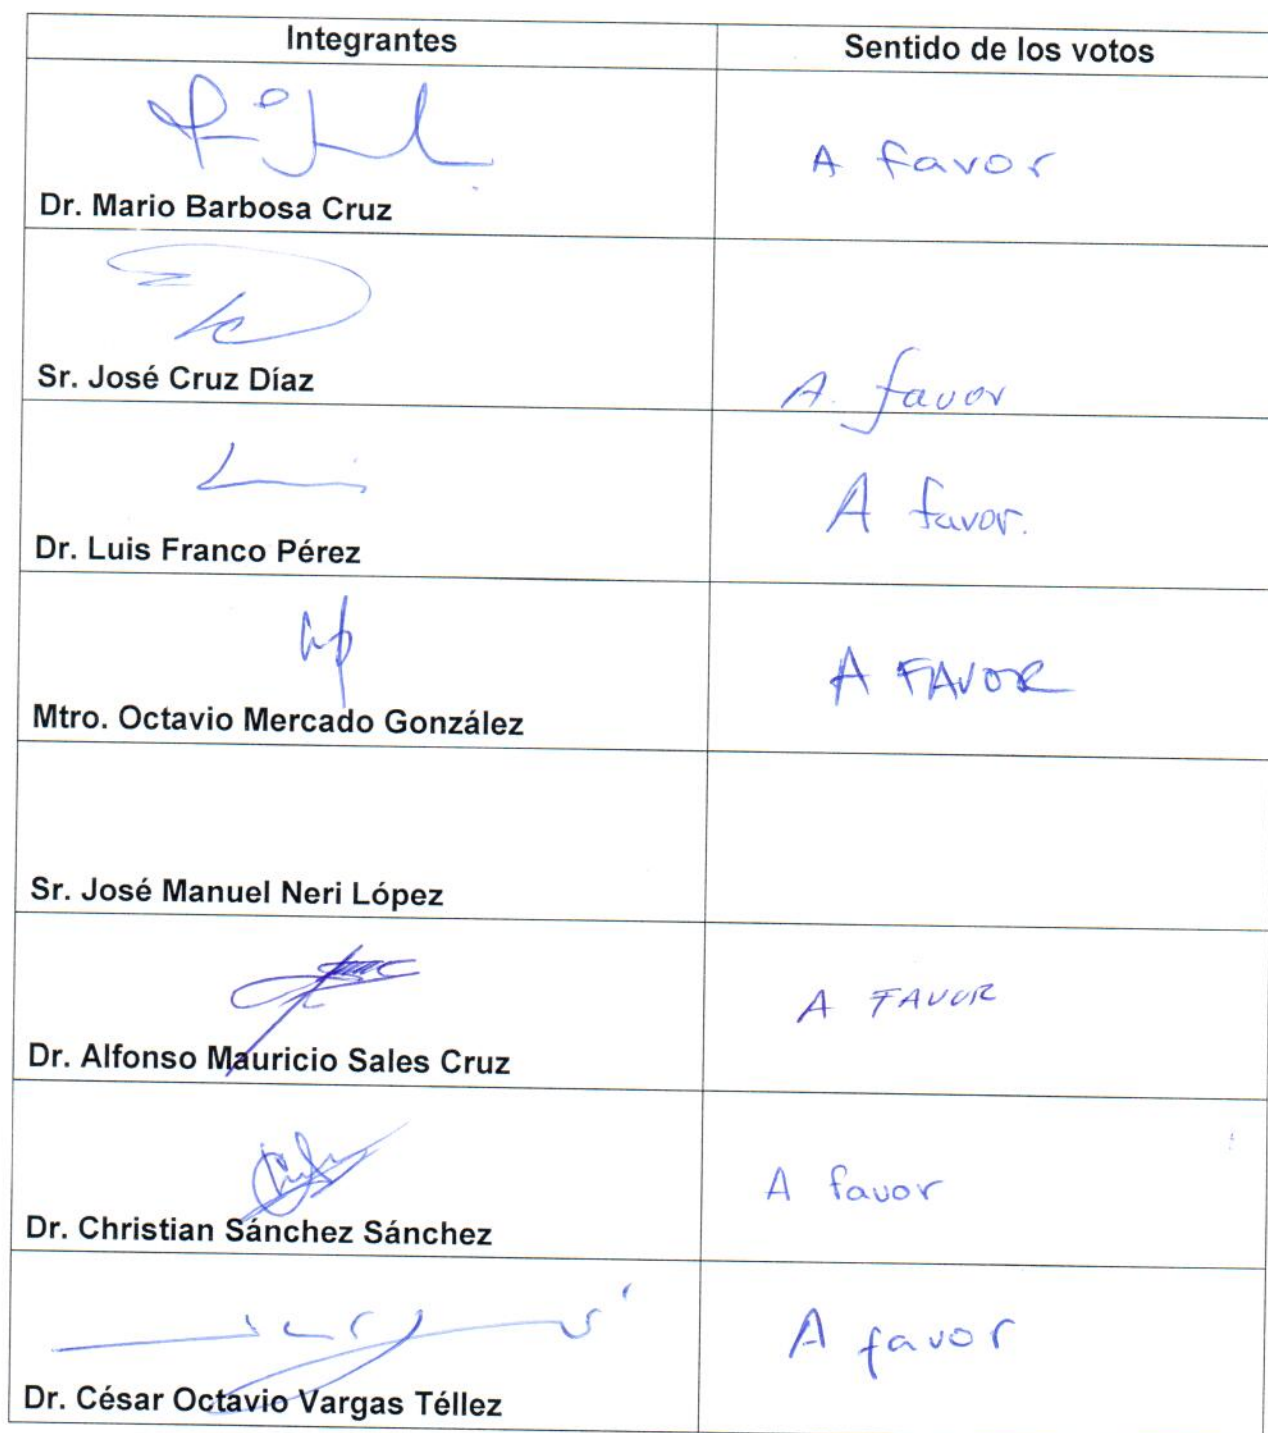 Integrantes Sentido de los votos
A favor
Dr. Mario Barbosa Cruz
Sr. José Cruz Díaz
A. favor
A favor.
Dr. Luis Franco Pérez
A FAVOR
Mtro. Octavio Mercado González
Sr. José Manuel Neri López
A FAVOR
Dr. Alfonso Mauricio Sales Cruz
A favor
Dr. Christian Sánchez Sánchez
A favor
Dr. César Octavio Vargas Téllez